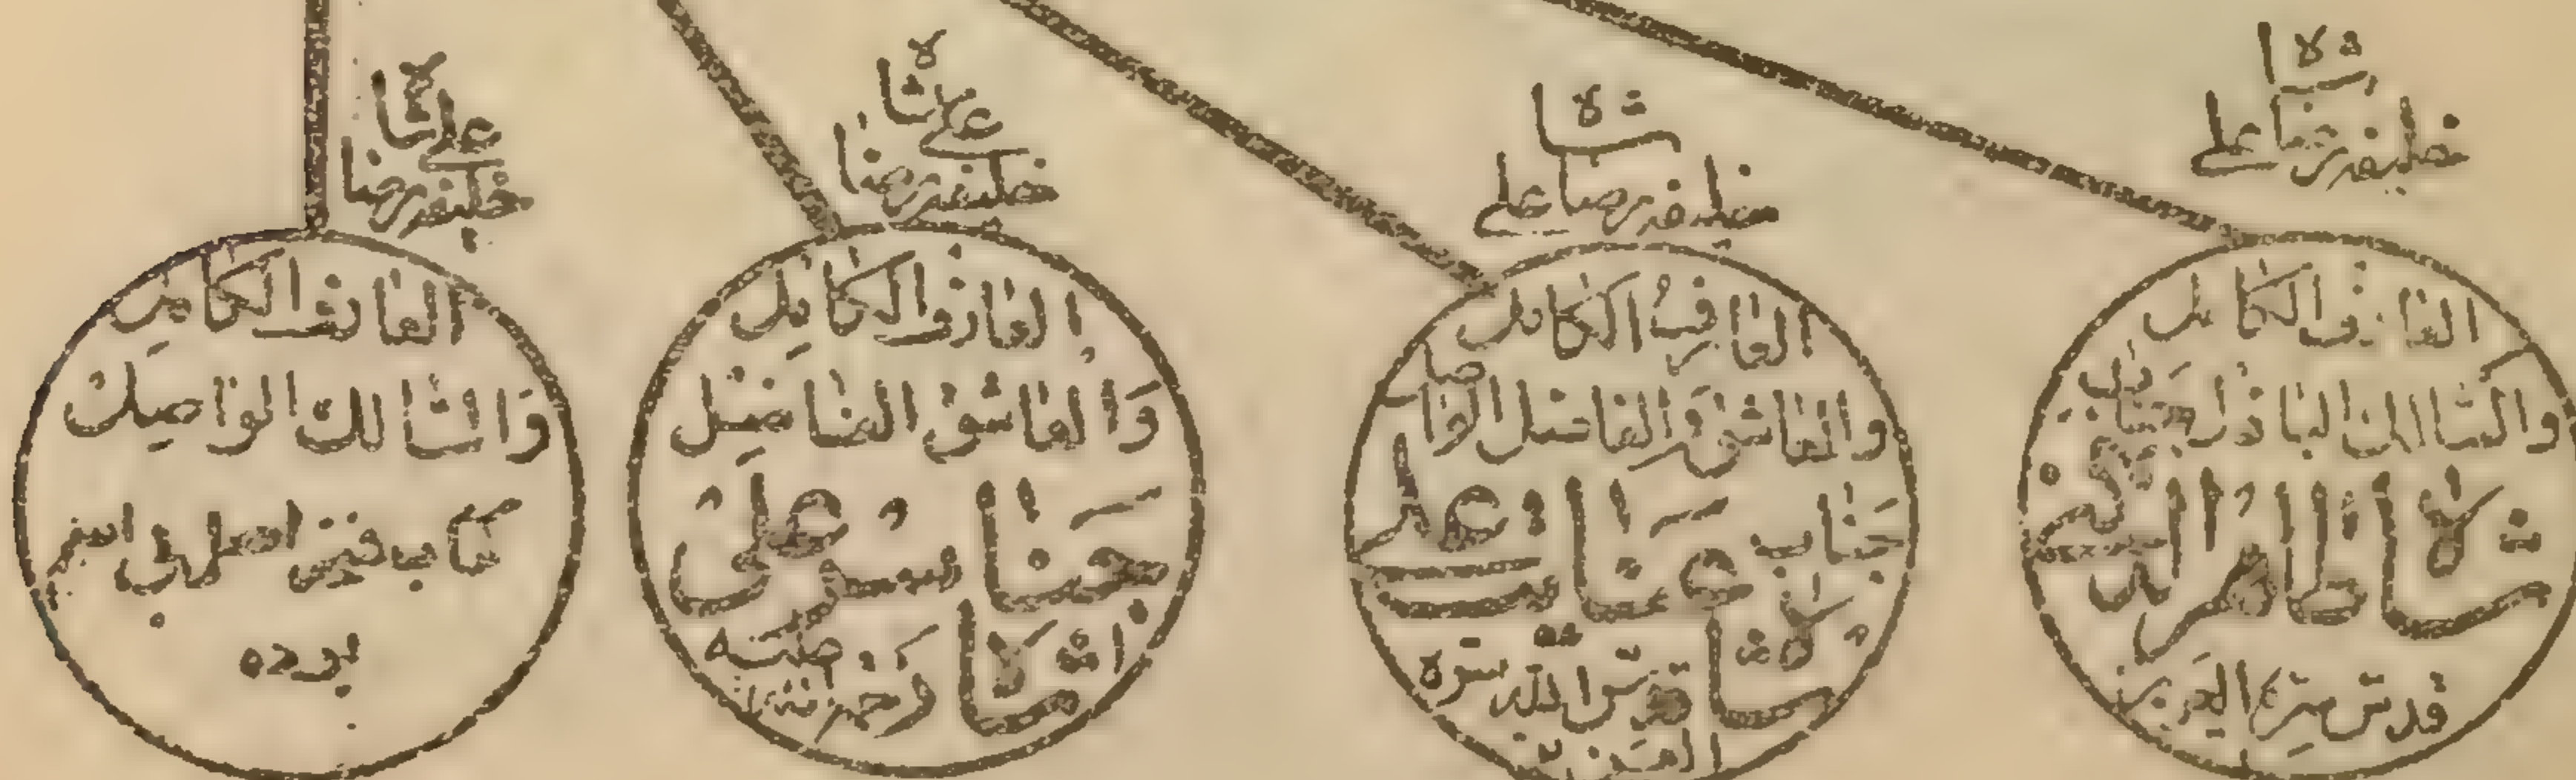 خلیفه رضا علی
شاه
العارف الکامل
والسالک الباذل جناب
شاه طاهر الدکنی
قدس سره العزیز
خلیفه رضا علی
شاه
العارف الکامل
والعاشق الفاضل الواصل
جناب عنایت علی
شاه قدس الله سره
العزیز
خلیفه رضا
علی شاه
العارف الکامل
والعاشق الفاضل
علی
شاه رحمة الله علیه
خلیفه رضا
علی شاه
العارف الکامل
والسالک الواصل
بوده